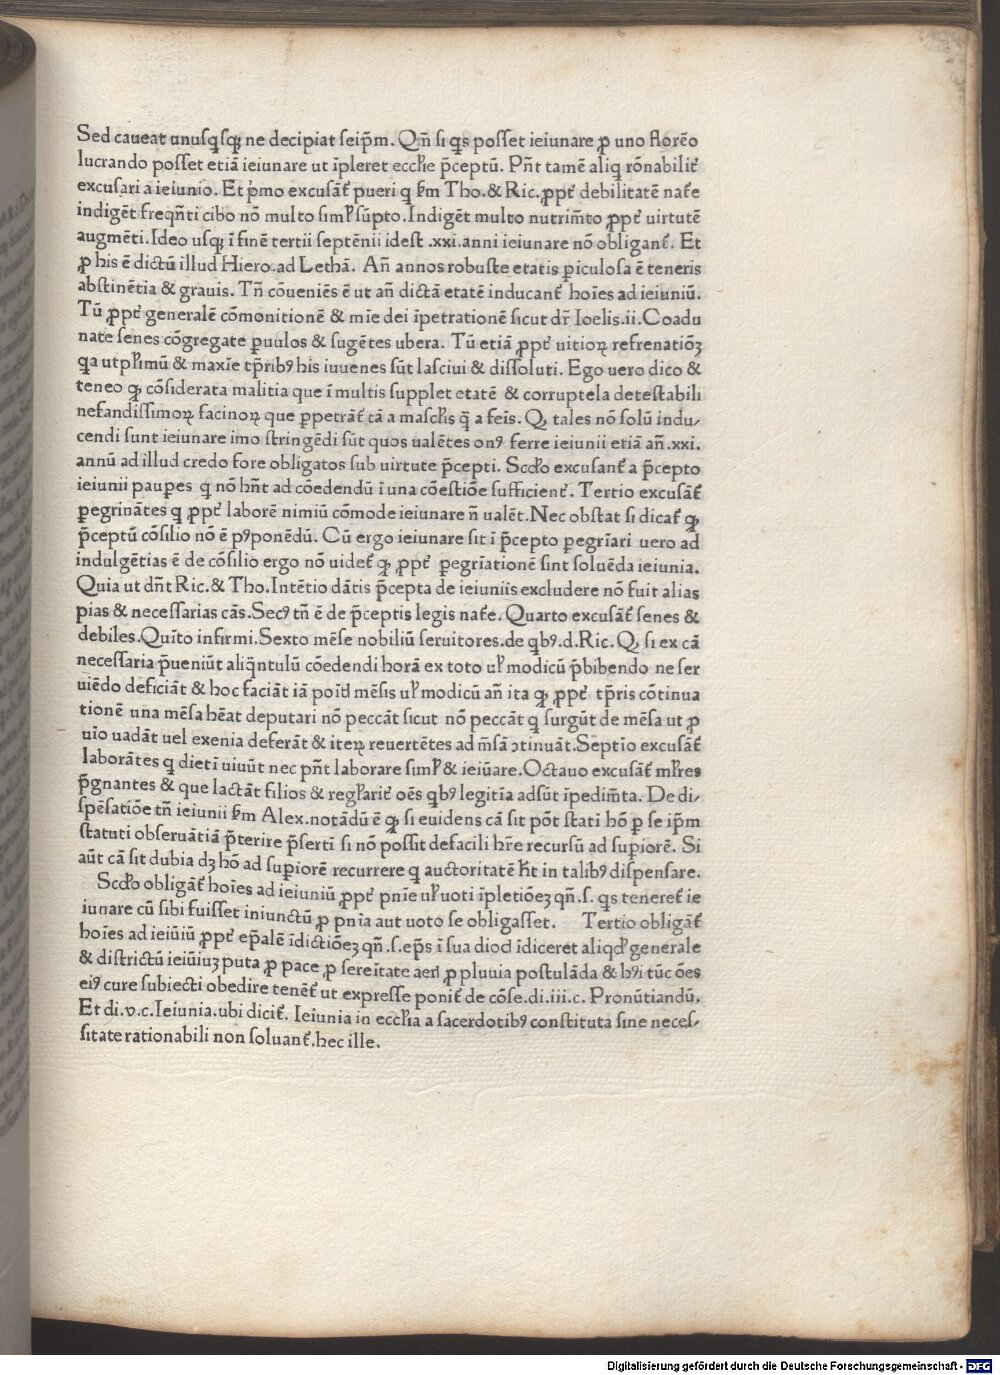 Sed caueat unuſqſqꝫ ne decipiat ſeip̄m. Qm̄ ſi qs poſſet ieiunare ꝓ uno florēo
lucrando poſſet etiā ieiunare ut īpleret eccłie p̄ceptū. Pn̄t tamē aliq rōnabilit᷑
excuſari a ieiunio. Et p̍mo excuſāt᷑ pueri q ẜm Tho.& Ric.ꝓpt᷑ debilitatē nat᷑e
indigēt freqn̄ti cibo nō multo ſimꝉ ſūpto.Indigēt multo nutrim̄to ꝓpt᷑ uirtutē
augmēti.Ideo uſqꝫ ī finē tertii ſeptēnii ideſt .xxi.anni ieiunare nō obligant᷑. Et
ꝓ his ē dictū illud Hiero.ad Lethā. An̄ annos robuſte etatis ꝑiculoſa ē teneris
abſtinētia & grauis. Tn̄ cōueniēs ē ut an̄ dictā etatē inducant᷑ hoīes ad ieiuniū.
Tū ꝓpt᷑ generalē cōmonitionē & mīe dei īpetrationē ſicut dr̄ Ioelis.ii.Coadu
nate ſenes cōgregate ꝑuulos & ſugētes ubera. Tū etiā ꝓpt᷑ uitioꝝ refrenatiōꝫ
qa utplimū & maxīe tp̄ribꝰ his iuuenes ſūt laſciui & diſſoluti. Ego uero dico &
teneo ꝙ cōſiderata malitia que ī multis ſupplet etatē & corruptela deteſtabili
nefandiſſimoꝝ facinoꝝ que ꝑpetrāt᷑ tā a maſcłis q̄ a feīs. Q, tales nō ſolū indu/
cendi ſunt ieiunare imo ſtringēdi ſūt quos ualētes onꝰ ferre ieiunii etiā an̄.xxi.
annū ad illud credo fore obligatos ſub uirtute p̄cepti. Scd̓o excuſant᷑ a p̄cepto
ieiunii pauꝑes q nō hn̄t ad cōedendū ī una cōeſtiōe ſufficient᷑. Tertio excuſāt᷑
ꝑegrinātes q ꝓpt᷑ laborē nimiū cōmode ieiunare n̄ ualēt.Nec obſtat ſi dicat᷑ ꝙ
p̄ceptū cōſilio nō ē pꝰponēdū. Cū ergo ieiunare ſit ī p̄cepto ꝑegrīari uero ad
indulgētias ē de cōſilio ergo nō uidet᷑ ꝙ ꝓpt᷑ ꝑegrīationē ſint ſoluēda ieiunia.
Quia ut dn̄t Ric.& Tho.Intētio dātis p̄cepta de ieiuniis excludere nō fuit alias
pias & neceſſarias cās.Secꝰ tn̄ ē de p̄ceptis legis nat᷑e. Quarto excuſāt᷑ ſenes &
debiles.Quīto infirmi.Sexto mēſe nobiliū ſeruitores.de qbꝰ.d.Ric. Q, ſi ex cā
neceſſaria p̄ueniūt aliqntulū cōedendi horā ex toto uꝉ modicū p̄bibendo ne ſer
uiēdo deficiāt & hoc faciāt iā poīd mēſis uꝉ modicū an̄ ita ꝙ ꝓpt᷑ tp̄ris cōtinua
tionē una mēſa hēat deputari nō peccāt ſicut nō peccāt q ſurgūt de mēſa ut ꝓ
uīo uadāt uel exenia deferāt & iteꝝ reuertētes ad m̄ſā ↄtinuāt.Septīo excuſāt᷑
laborātes q dietī uiuūt nec pn̄t laborare ſimꝉ & ieiūare.Octauo excuſāt᷑ młres
p̄gnantes & que lactāt filios & regłarit᷑ oēs qbꝰ legitīa adſūt īpedim̄ta. De di/
ſpēſatiōe tn̄ ieiunii ẜm Alex.notādū ē ꝙ ſi euidens cā ſit pōt ſtati hō ꝑ ſe ip̄m
ſtatuti obſeruātiā p̄terire p̄ſertī ſi nō poſſit defacili hr̄e recurſū ad ſuꝑiorē. Si
aūt cā ſit dubia dꝫ hō ad ſuꝑiorē recurrere q auctoritatē ħt in talibꝰ diſpenſare.
Scd̓o obligāt᷑ hoīes ad ieiuniū ꝓpt᷑ pnīe uꝉ uoti īpletiōeꝫ qn̄.ſ. qs teneret᷑ ie
iunare cū ſibi fuiſſet iniunctū ꝓ pnīa aut uoto ſe obligaſſet. Tertio obligāt᷑
hoīes ad ieiūiū ꝓpt᷑ ep̄alē īdictiōeꝫ qn̄.ſ.ep̄s ī ſua dioc̄ īdiceret aliqd̓ generale
& diſtrictū ieiūiuꝫ puta ꝓ pace ꝓ ſereītate aerꝭ ꝓ pluuia poſtulāda & hꝰi tūc ōes
eiꝰ cure ſubiecti obedire tenēt᷑ ut expreſſe ponit᷑ de cōſe.di.iii.c. Pronūtiandū.
Et di.v.c.Ieiunia.ubi dicit᷑. Ieiunia in eccłia a ſacerdotibꝰ conſtituta ſine neceſ/
ſitate rationabili non ſoluant᷑.hec ille.
Digitalisierung gefördert durch die Deutsche Forschungsgemeinschaft - DFG